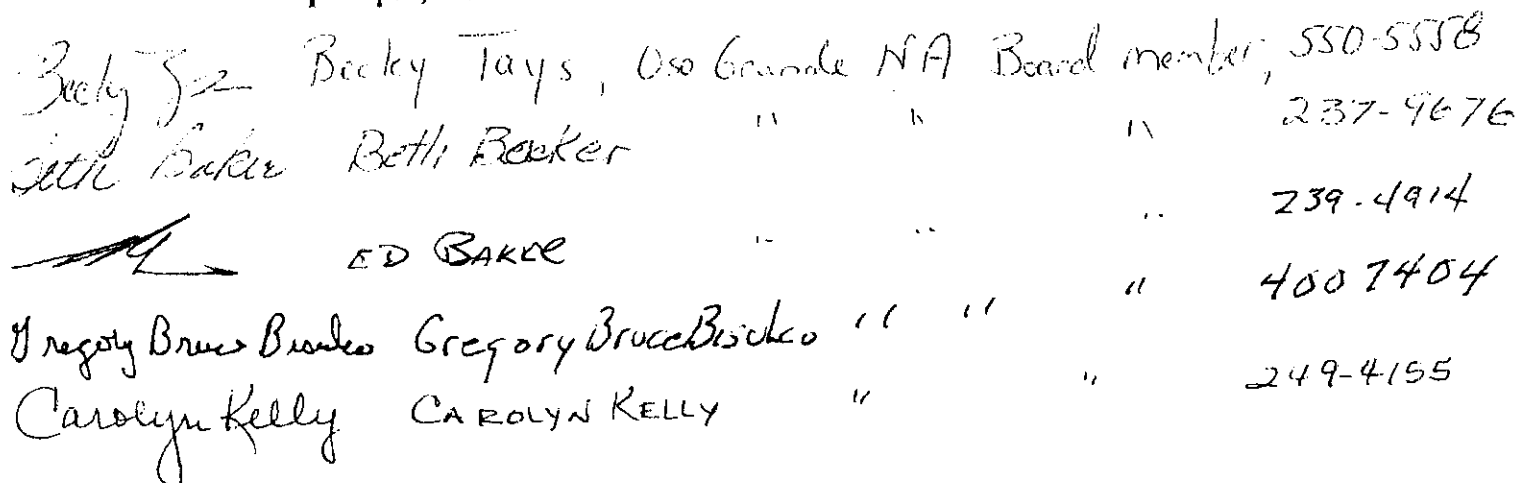 Becky Tays, Oso Grande NA Board member, 550-5558
Beth Baker Beth Baker " " " 237-9676
ED BAKER " " " 239-4914
Gregory Bruce Bisulco Gregory Bruce Bisulco " " " 400 7404
Carolyn Kelly CAROLYN KELLY " " 249-4155